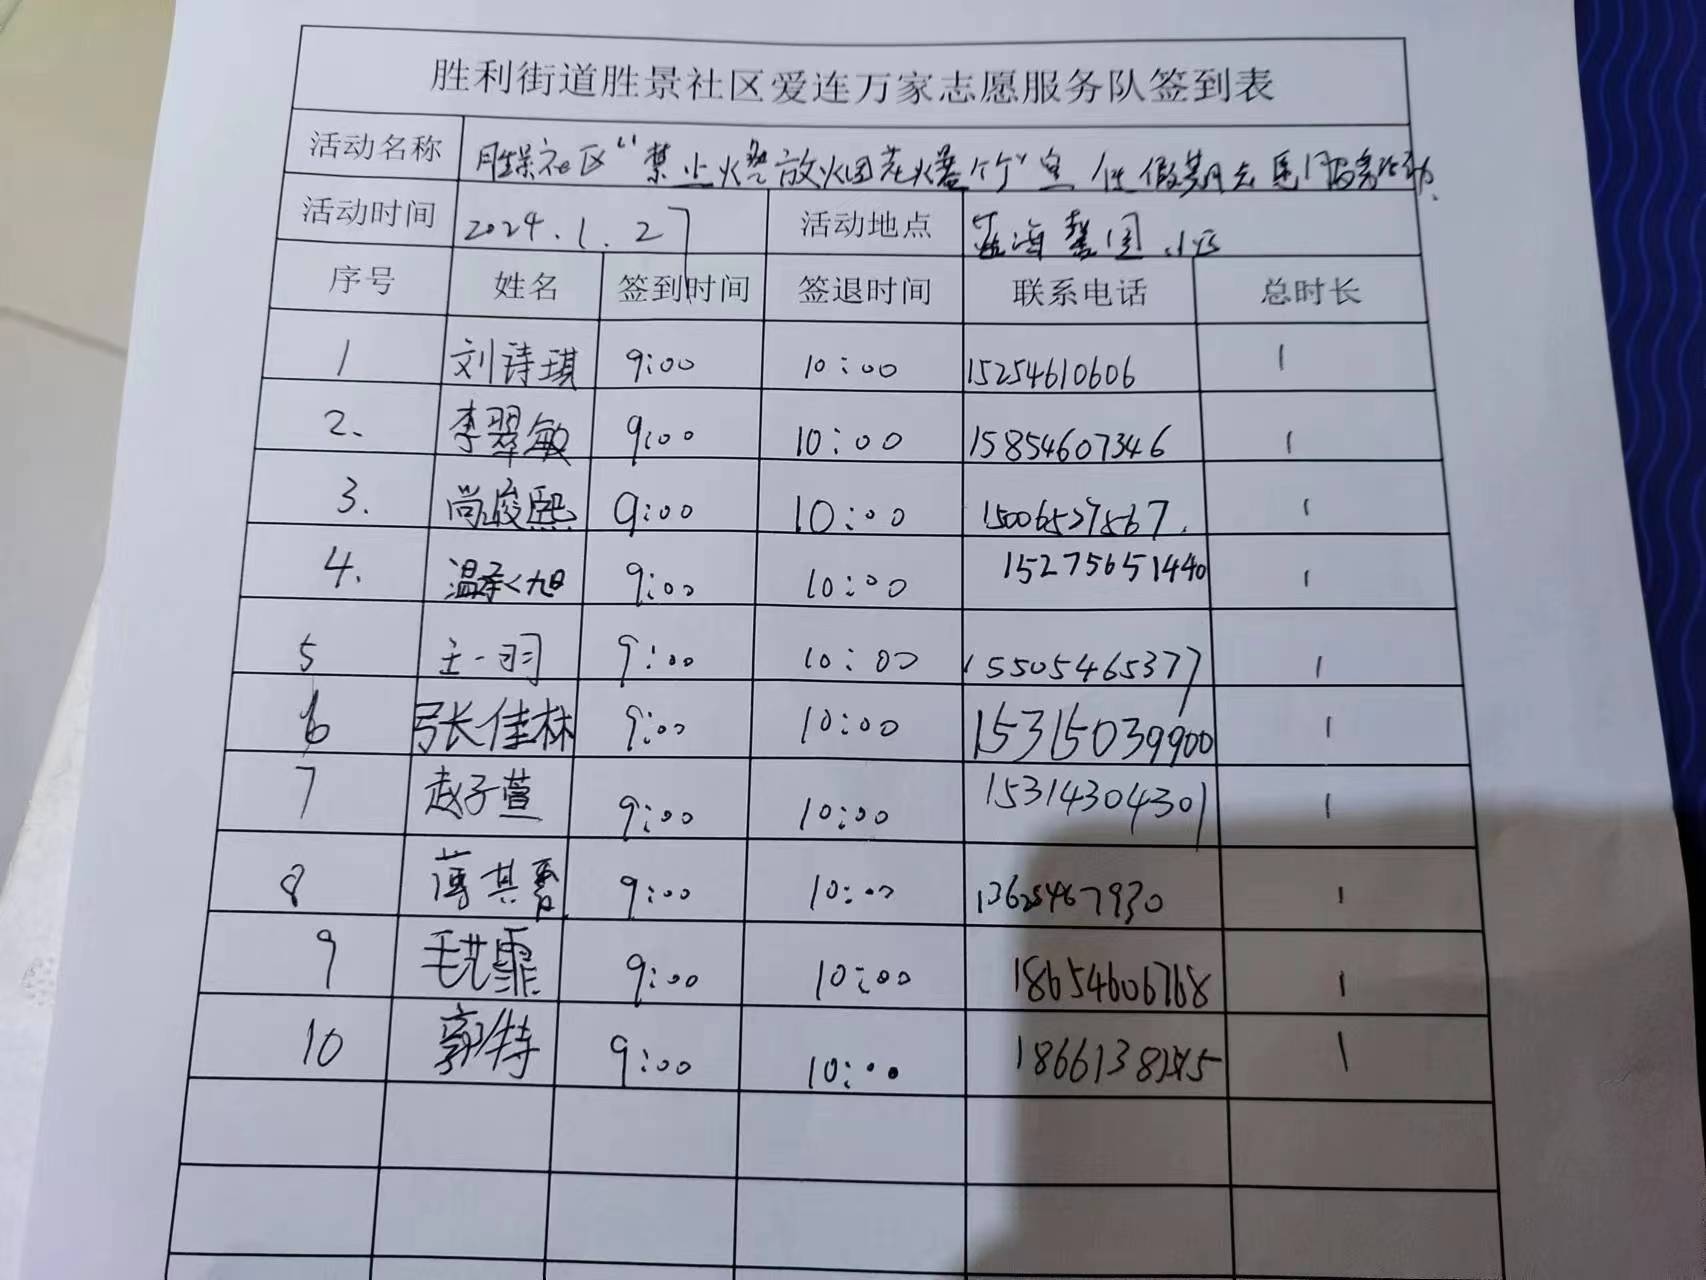 胜利街道胜景社区爱连万家志愿服务队签到表
活动名称 胜景社区“禁止燃放烟花爆竹”宣传假期志愿服务活动.
活动时间 2024.1.27 活动地点 蓝海馨园小区
序号 姓名 签到时间 签退时间 联系电话 总时长
1 刘诗琪 9:00 10:00 15254610606 1
2. 李翠敏 9:00 10:00 15854607346 1
3. 尚峻熙 9:00 10:00 15006527867. 1
4. 温承旭 9:00 10:00 15275651440 1
5 王一羽 9:00 10:00 15505465377 1
6 张佳林 9:00 10:00 15315039900 1
7 赵子萱 9:00 10:00 15314304301 1
8 薄其 9:00 10:00 13625467930 1
9 毛艺霏 9:00 10:00 18654606768 1
10 郭特 9:00 10:00 1